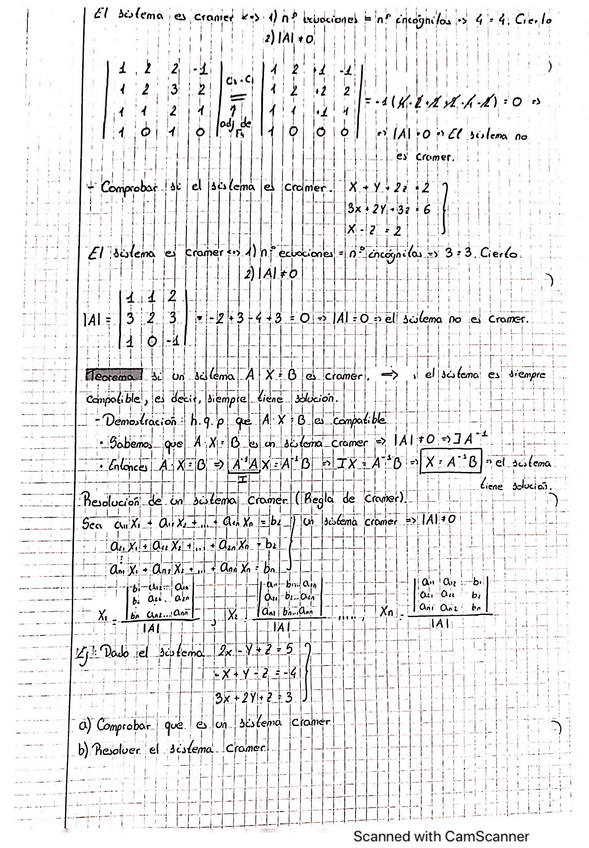 El sistema es cramer <=> 1) nº ecuaciones = nº incógnitas => 4 = 4. Cierto
2) |A| ≠ 0
| 1 2 2 -1 | C3-C1 | 1 2 1 -1 |
| 1 2 3 2 | = | 1 2 2 2 | = -1 ( ) = 0 =>
| 1 1 2 1 | adj de | 1 1 1 1 | => |A| = 0 => El sistema no
| 1 0 1 0 | F4 | 1 0 0 0 | es cramer.
- Comprobar si el sistema es cramer. X + Y + 2z = 2
3x + 2Y + 3z = 6
X - z = 2
El sistema es cramer <=> 1) nº ecuaciones = nº incógnitas => 3 = 3. Cierto.
2) |A| ≠ 0
| 1 1 2 |
|A| = | 3 2 3 | = -2 + 3 - 4 + 3 = 0 => |A| = 0 => el sistema no es cramer.
| 1 0 -1 |
Teorema si un sistema A·X = B es cramer, =>, el sistema es siempre
compatible, es decir, siempre tiene solución.
- Demostración: h.q.p que A·X = B es compatible
· Sabemos que A·X = B es un sistema cramer => |A| ≠ 0 => ∃ A⁻¹
· Entonces A·X = B => A⁻¹A X = A⁻¹B => IX = A⁻¹B => X = A⁻¹B => el sistema
I
tiene solución.
Resolución de un sistema cramer (Regla de Cramer)
Sea a11 X1 + a12 X2 + ... + a1n Xn = b1 un sistema cramer => |A| ≠ 0
a21 X1 + a22 X2 + ... + a2n Xn = b2
an1 X1 + an2 X2 + ... + ann Xn = bn
| b1 a12 ... a1n | | a11 b1 ... a1n | | a11 a12 ... b1 |
| b2 a22 ... a2n | | a21 b2 ... a2n | | a21 a22 b2 |
X1 = | bn an2 ... ann | , X2 = | an1 bn ... ann | , ...., Xn = | an1 an2 bn |
|A| |A| |A|
Ej: Dado el sistema 2x - Y + z = 5
-X + Y - z = -4
3x + 2Y + z = 3
a) Comprobar que es un sistema cramer
b) Resolver el sistema cramer
Scanned with CamScanner